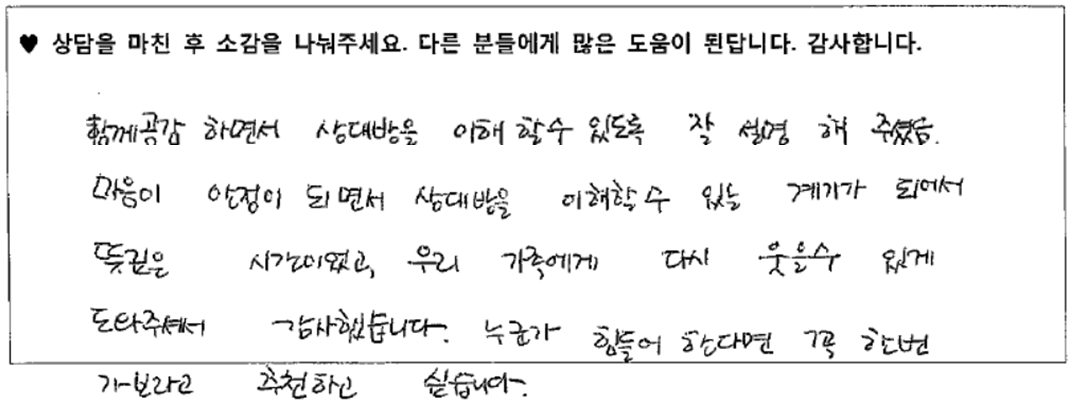 ♥ 상담을 마친 후 소감을 나눠주세요. 다른 분들에게 많은 도움이 된답니다. 감사합니다.
함께공감 하면서 상대방을 이해 할수 있도록 잘 설명 해 주셨음.
마음이 안정이 되면서 상대방을 이해할 수 있는 계기가 되어서
뜻깊은 시간이었고, 우리 가족에게 다시 웃을수 있게
도와주셔서 감사했습니다. 누군가 힘들어 한다면 꼭 한번
가보라고 추천하고 싶습니다.